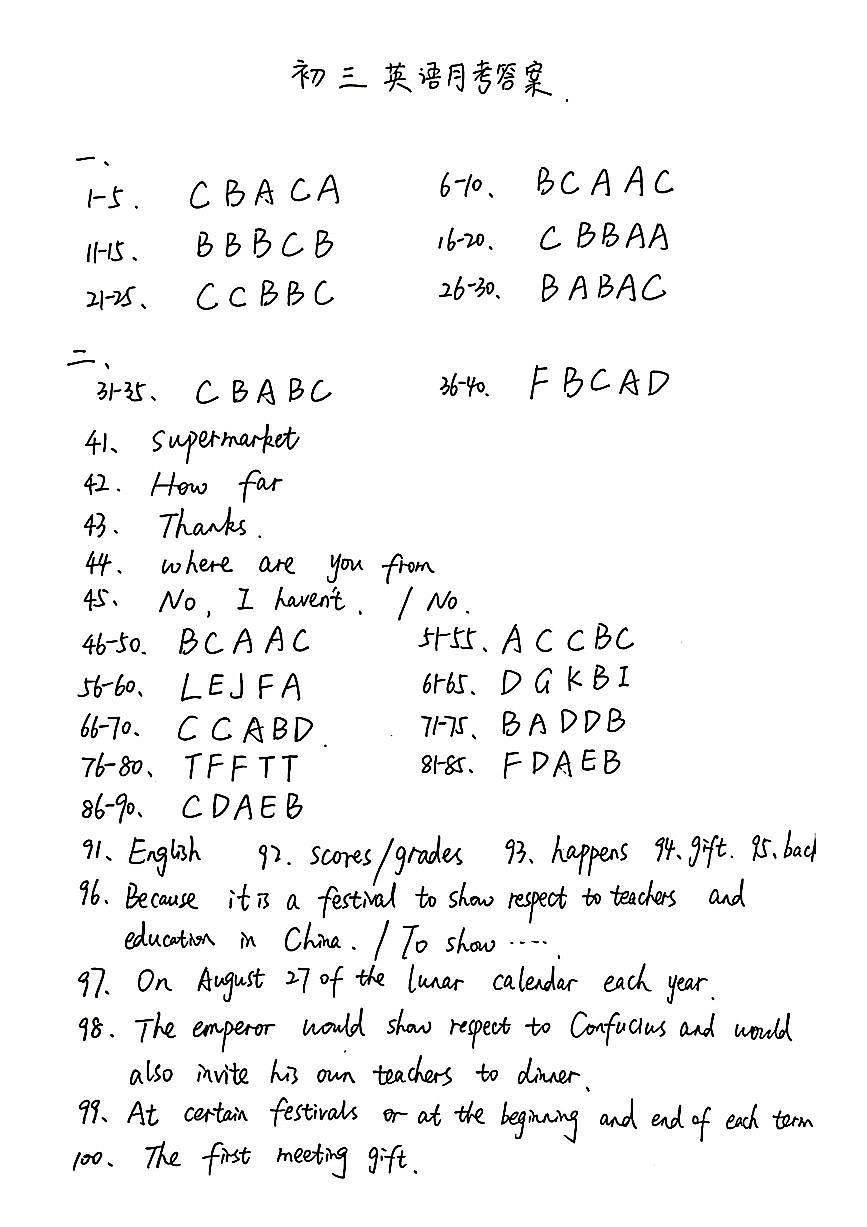 初三英语月考答案.
一、
1-5. C B A C A 6-10、 B C A A C
11-15、 B B B C B 16-20、 C B B A A
21-25、 C C B B C 26-30、 B A B A C
二、
31-35、 C B A B C 36-40. F B C A D
41、 supermarket
42. How far
43. Thanks.
44. where are you from
45、 No, I haven't. / No.
46-50. B C A A C 51-55、 A C C B C
56-60、 L E J F A 61-65、 D G K B I
66-70、 C C A B D. 71-75、 B A D D B
76-80、 T F F T T 81-85、 F D A E B
86-90、 C D A E B
91、English 92. scores/grades 93、happens 94、gift. 95、back
96、Because it is a festival to show respect to teachers and
education in China. / To show ....
97、On August 27 of the lunar calendar each year.
98. The emperor would show respect to Confucius and would
also invite his own teachers to dinner.
99、At certain festivals or at the beginning and end of each term
100、The first meeting gift.